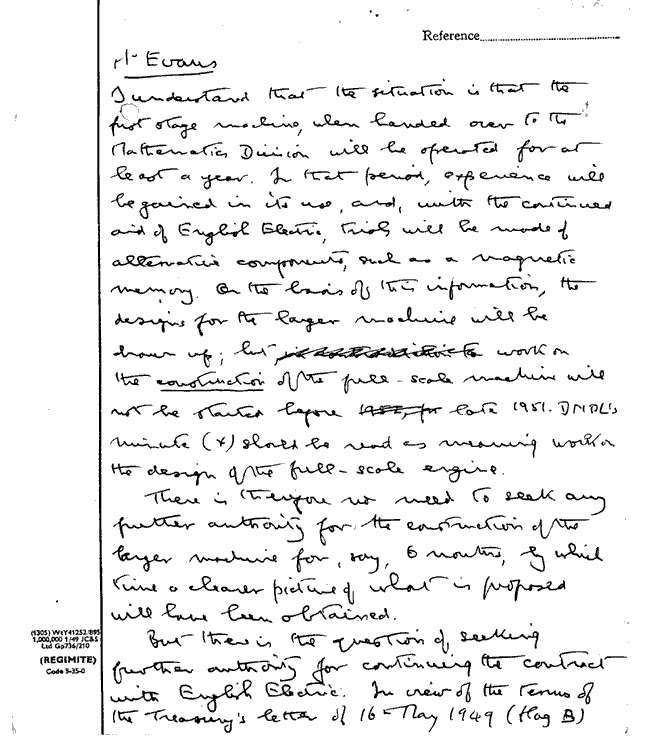 Reference
Mr Evans
I understand that the situation is that the
first stage machine, when handed over to the
Mathematics Division will be operated for at
least a year. In that period, experience will
be gained in its use, and, with the continued
aid of English Electric, trials will be made of
alternative components, such as a magnetic
memory. On the basis of this information, the
designs for the larger machine will be
drawn up; but, work on
the construction of the full-scale machine will
not be started before late 1951. DNPL's
minute (x) should be read as meaning work on
the design of the full-scale engine.
There is therefore no need to seek any
further authority for the construction of the
larger machine for, say, 6 months, by which
time a clearer picture of what is proposed
will have been obtained.
But there is the question of seeking
further authority for continuing the contract
with English Electric. In view of the terms of
the Treasury's letter of 16 May 1949 (Flag B)
(1305) Wt Y41252/895
1,000,000 1/49 JC&S
Ltd Gp736/210
(REGIMITE)
Code 5-35-0